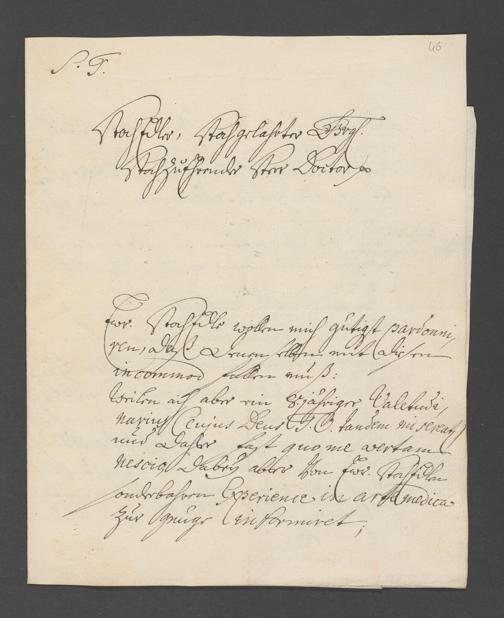 46
S. T.
HochEdler, Hochgelahrter
Hochzuehrender Herr Doctor
Ewr. HochEdle wollen mich gütigst pardonni,
ren, daß denenselben mit diesem
incommod fallen muß:
Weilen ich aber ein 8. jähriger Valetudi
narius (cujus Deus T. O. tandem misereat)
und daher fast quo me vertam
nescio, dabey aber von Ewr. HochEdlen
sonderbahren Experience in arte medica
zur gnüge informiret;